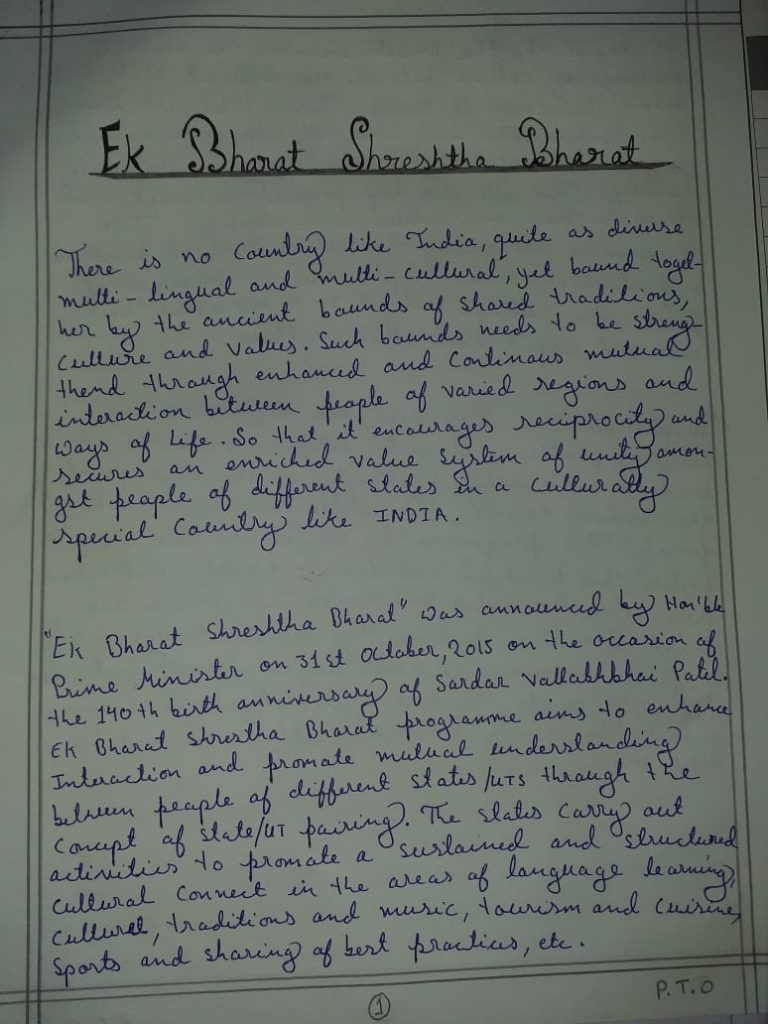 Ek Bharat Shreshtha Bharat
There is no Country like India, quite as diverse
multi-lingual and multi-cultural, yet bound toget-
her by the ancient bounds of shared traditions,
culture and values. Such bounds needs to be streng-
thend through enhanced and continous mutual
interaction between people of varied regions and
ways of life. So that it encourages reciprocity and
secures an enriched value system of unity amon-
gst people of different states in a culturally
special Country like INDIA.
"Ek Bharat Shreshtha Bharat" was announced by Hon'ble
Prime Minister on 31st October, 2015 on the occasion of
the 140th birth anniversary of Sardar Vallabhbhai Patel.
Ek Bharat Shrestha Bharat programme aims to enhance
Interaction and promote mutual understanding
between people of different states/UTS through the
Concept of state/UT pairing. The states carry out
activities to promote a sustained and structured
cultural connect in the areas of language learning,
culture, traditions and music, tourism and cuisine,
Sports and sharing of best practices, etc.
P.T.O
1